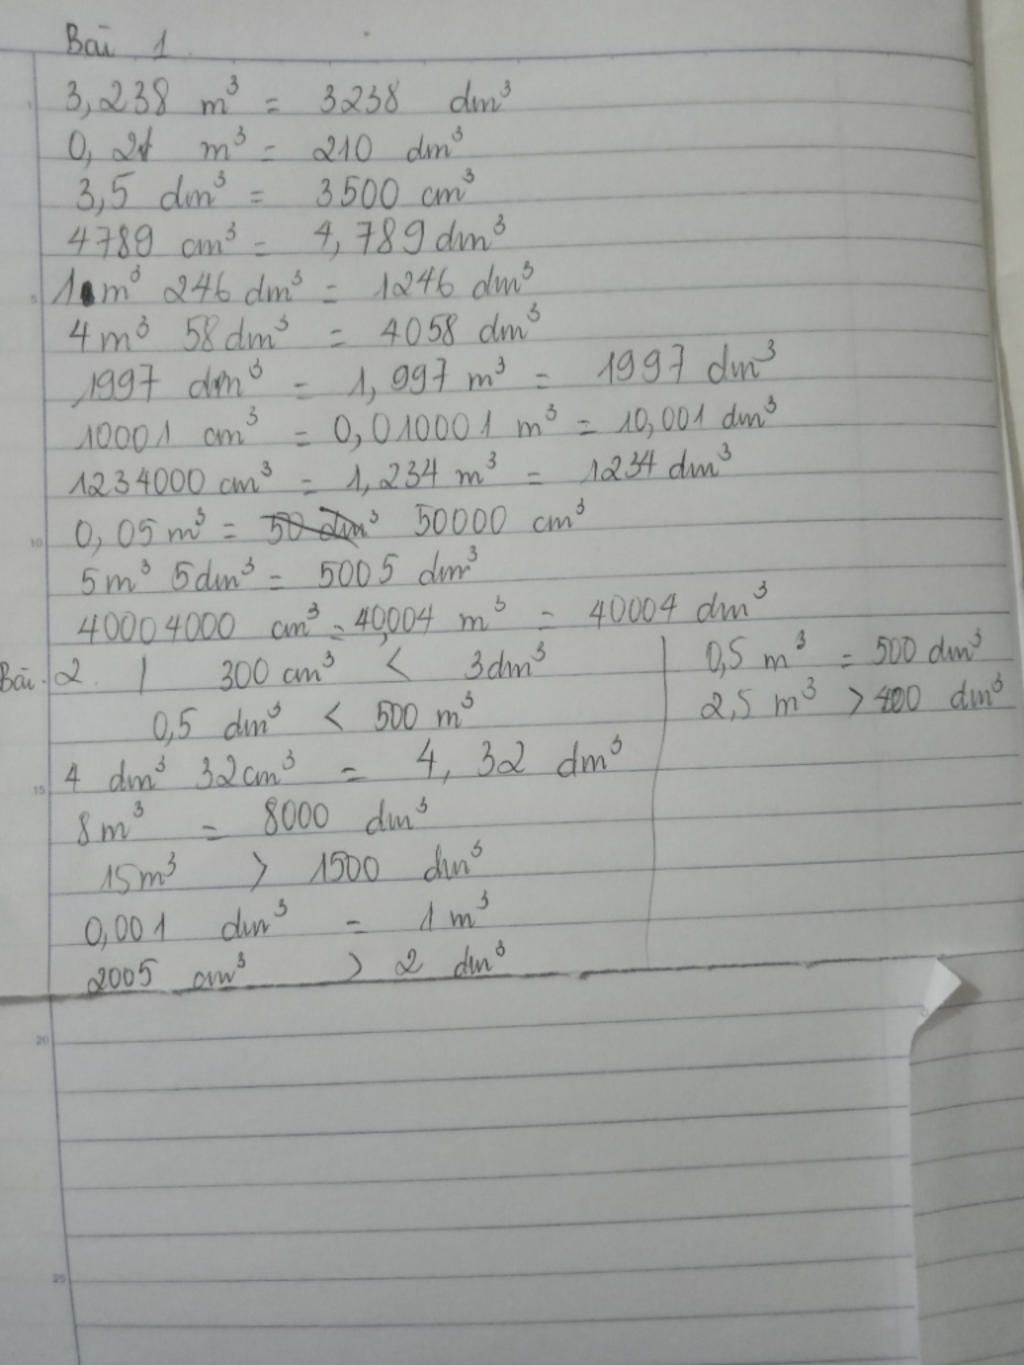 Bài 1
3,238 m³ = 3238 dm³
0,21 m³ = 210 dm³
3,5 dm³ = 3500 cm³
4789 cm³ = 4,789 dm³
1 m³ 246 dm³ = 1246 dm³
4 m³ 58 dm³ = 4058 dm³
1997 dm³ = 1,997 m³ = 1997 dm³
10001 cm³ = 0,010001 m³ = 10,001 dm³
1234000 cm³ = 1,234 m³ = 1234 dm³
0,05 m³ = 50 dm³ 50000 cm³
5 m³ 5 dm³ = 5005 dm³
40004000 cm³ = 40,004 m³ = 40004 dm³
Bài 2. | 300 cm³ < 3 dm³
0,5 dm³ < 500 m³
4 dm³ 32 cm³ = 4,32 dm³
8 m³ = 8000 dm³
15 m³ > 1500 dm³
0,001 dm³ = 1 m³
2005 cm³ > 2 dm³
0,5 m³ = 500 dm³
2,5 m³ > 400 dm³
5
10
15
20
25